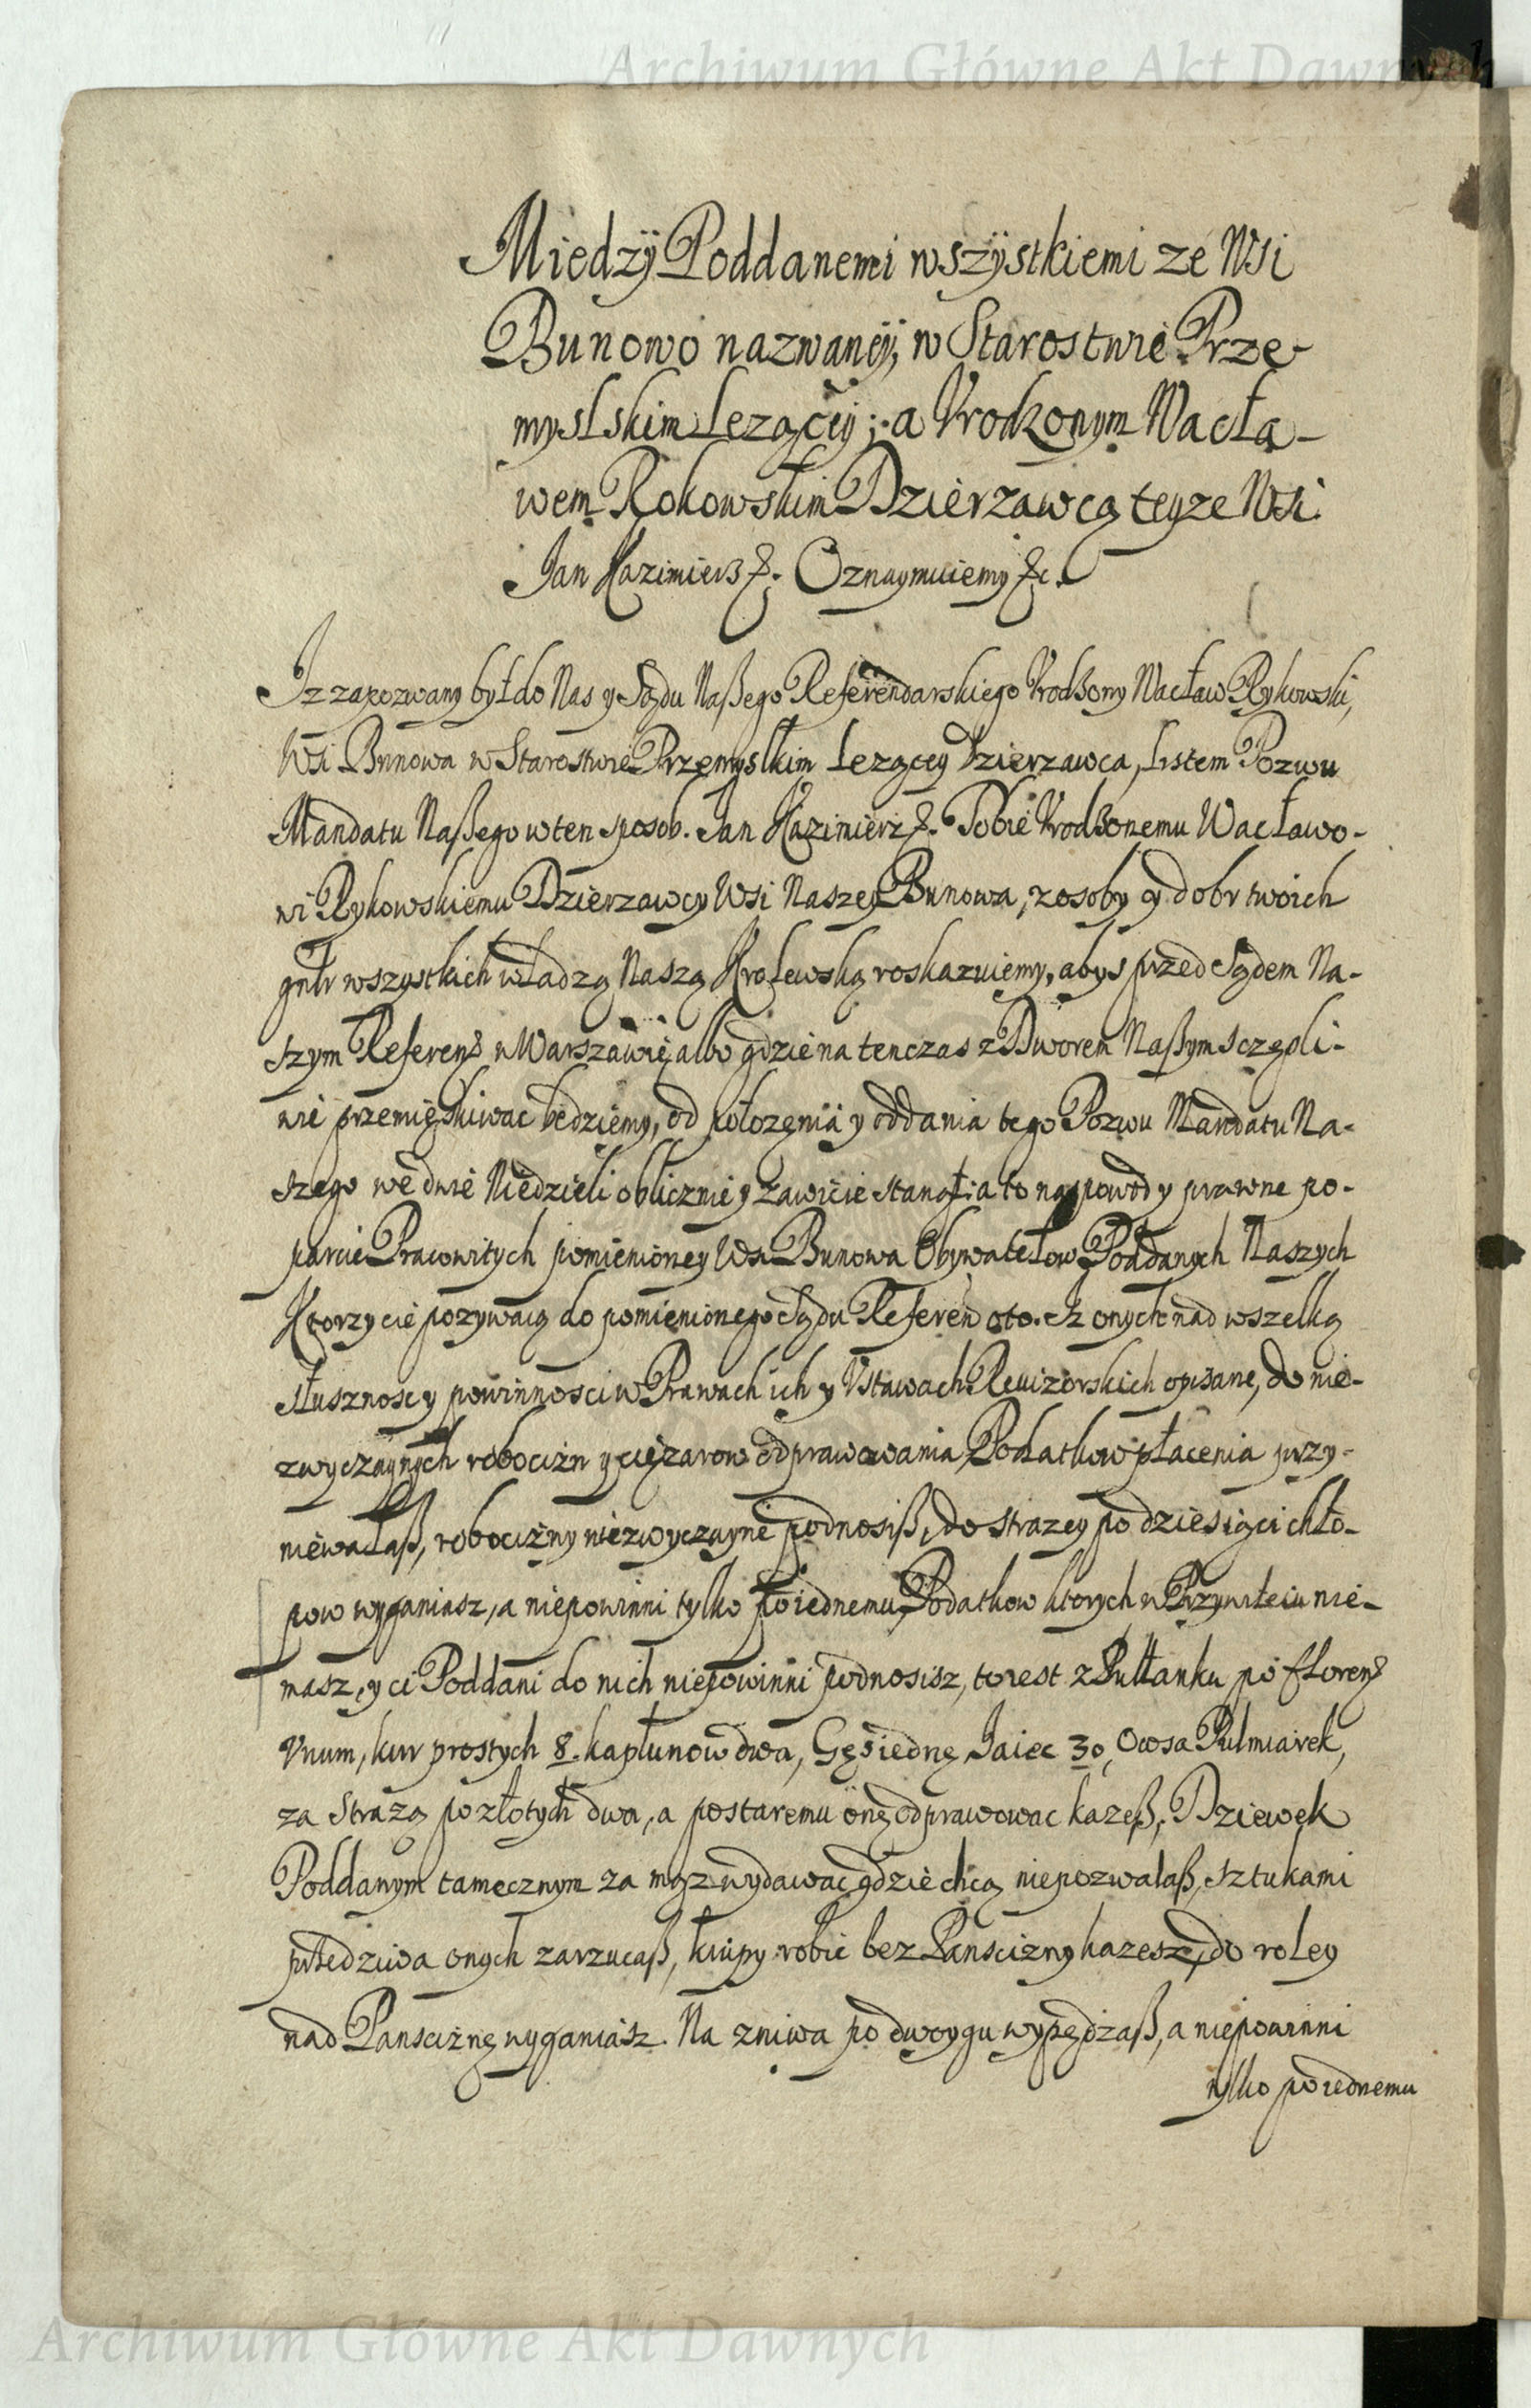 Archiwum Główne Akt Dawnych
Miedzÿ Poddanemi wszÿstkiemi ze Wsi
Bunowo nazwaneÿ, w Starostwie Prze-
myslskim lezącey; a Vrodzonym Wacła-
wem Rokowskim Dzierzawcą teyze Wsi.
Jan Kazimierz &. Oznaymuiemy &c.
Iz zapozwany był do Nas y Sądu Naßego Referendarskiego Vrodzony Wacław Rykowski,
Wsi Bunowa w Starostwie Przemyslkim lezącey Dzierzawca, listem Pozwu
Mandatu Naßego w ten sposob. Jan Kazimierz &. Tobie Vrodzonemu Wacławo-
wi Rykowskiemu Dzierzawcy Wsi Naszey Bunowa, z osoby y dobr twoich
gnlr wszystkich władzą Naszą Krolewską roskazuiemy, abys przed Sądem Na-
szym Referen w Warszawie, albo gdzie na tenczas z Dworem Naßym sczęsli-
wie przemięskiwac będziemy, od połozenia y oddania tego Pozwu Mandatu Na-
szego we dwie Niedzieli oblicznie y zawicie stanął: a to na powod y prawne po-
parcie Pracowitych pomienioney Wsi Bunowa Obywatelow Poddanych Naszych
Ktorzy cie pozywaią do pomienionego Sądu Referen oto. Iz onych nad wszelką
słusznosc y powinnosci w Prawach ich y Vstawach Reuizorskich opisane, do nie-
zwyczaynych robocizn y cięzarow odprawowania, Podatkow płacenia przy-
niewalaß, robocizny niezwyczayne podnosiß, do strazey po dziesiąci chło-
pow wyganiasz, a niepowinni tylko po iednemu, Podatkow ktorych w Przywileiu nie-
masz, y ci Poddani do nich niepowinni podnosisz, to iest z Pułłanku po floren
Vnum, kur prostych 8. kapłunow dwa, Gęś iednę, Jaiec 30, Owsa Pulmiarek,
za Strazą po złotych dwa, a postaremu onę odprawowac kazeß, Dziewek
Poddanym tamecznym za mąz wydawac gdzie chcą niepozwalaß, sztukami
przedziwa onych zarzucaß, krupy robic bez Panscizny kazesz, do roley
nad Pansciznę wyganiasz. Na zniwa po dwoygu wypędzaß, a niepowinni
tylko po iednemu
Archiwum Główne Akt Dawnych